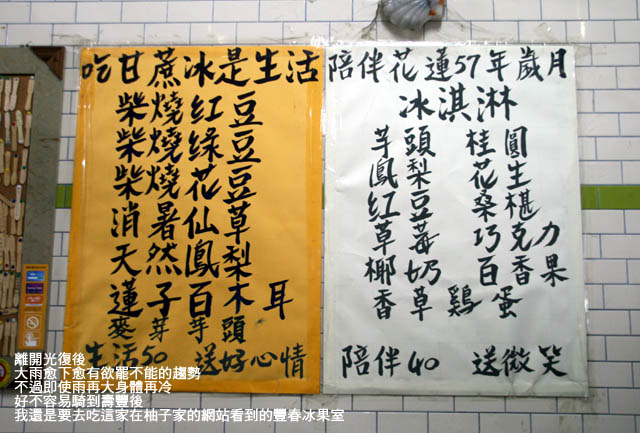 吃甘蔗冰是生活
柴燒紅豆
柴燒綠豆
柴燒花豆
消暑仙草
天然鳳梨
蓮子百木耳
麥芽芋頭
生活50 送好心情
陪伴花蓮57年歲月
冰淇淋
芋頭 桂圓
鳳梨 花生
紅豆 桑椹
草莓 巧克力
椰奶 百香果
香草雞蛋
陪伴40 送微笑
離開光復後
大雨愈下愈有欲罷不能的趨勢
不過即使雨再大身體再冷
好不容易騎到壽豐後
我還是要去吃這家在柚子家的網站看到的豐春冰果室